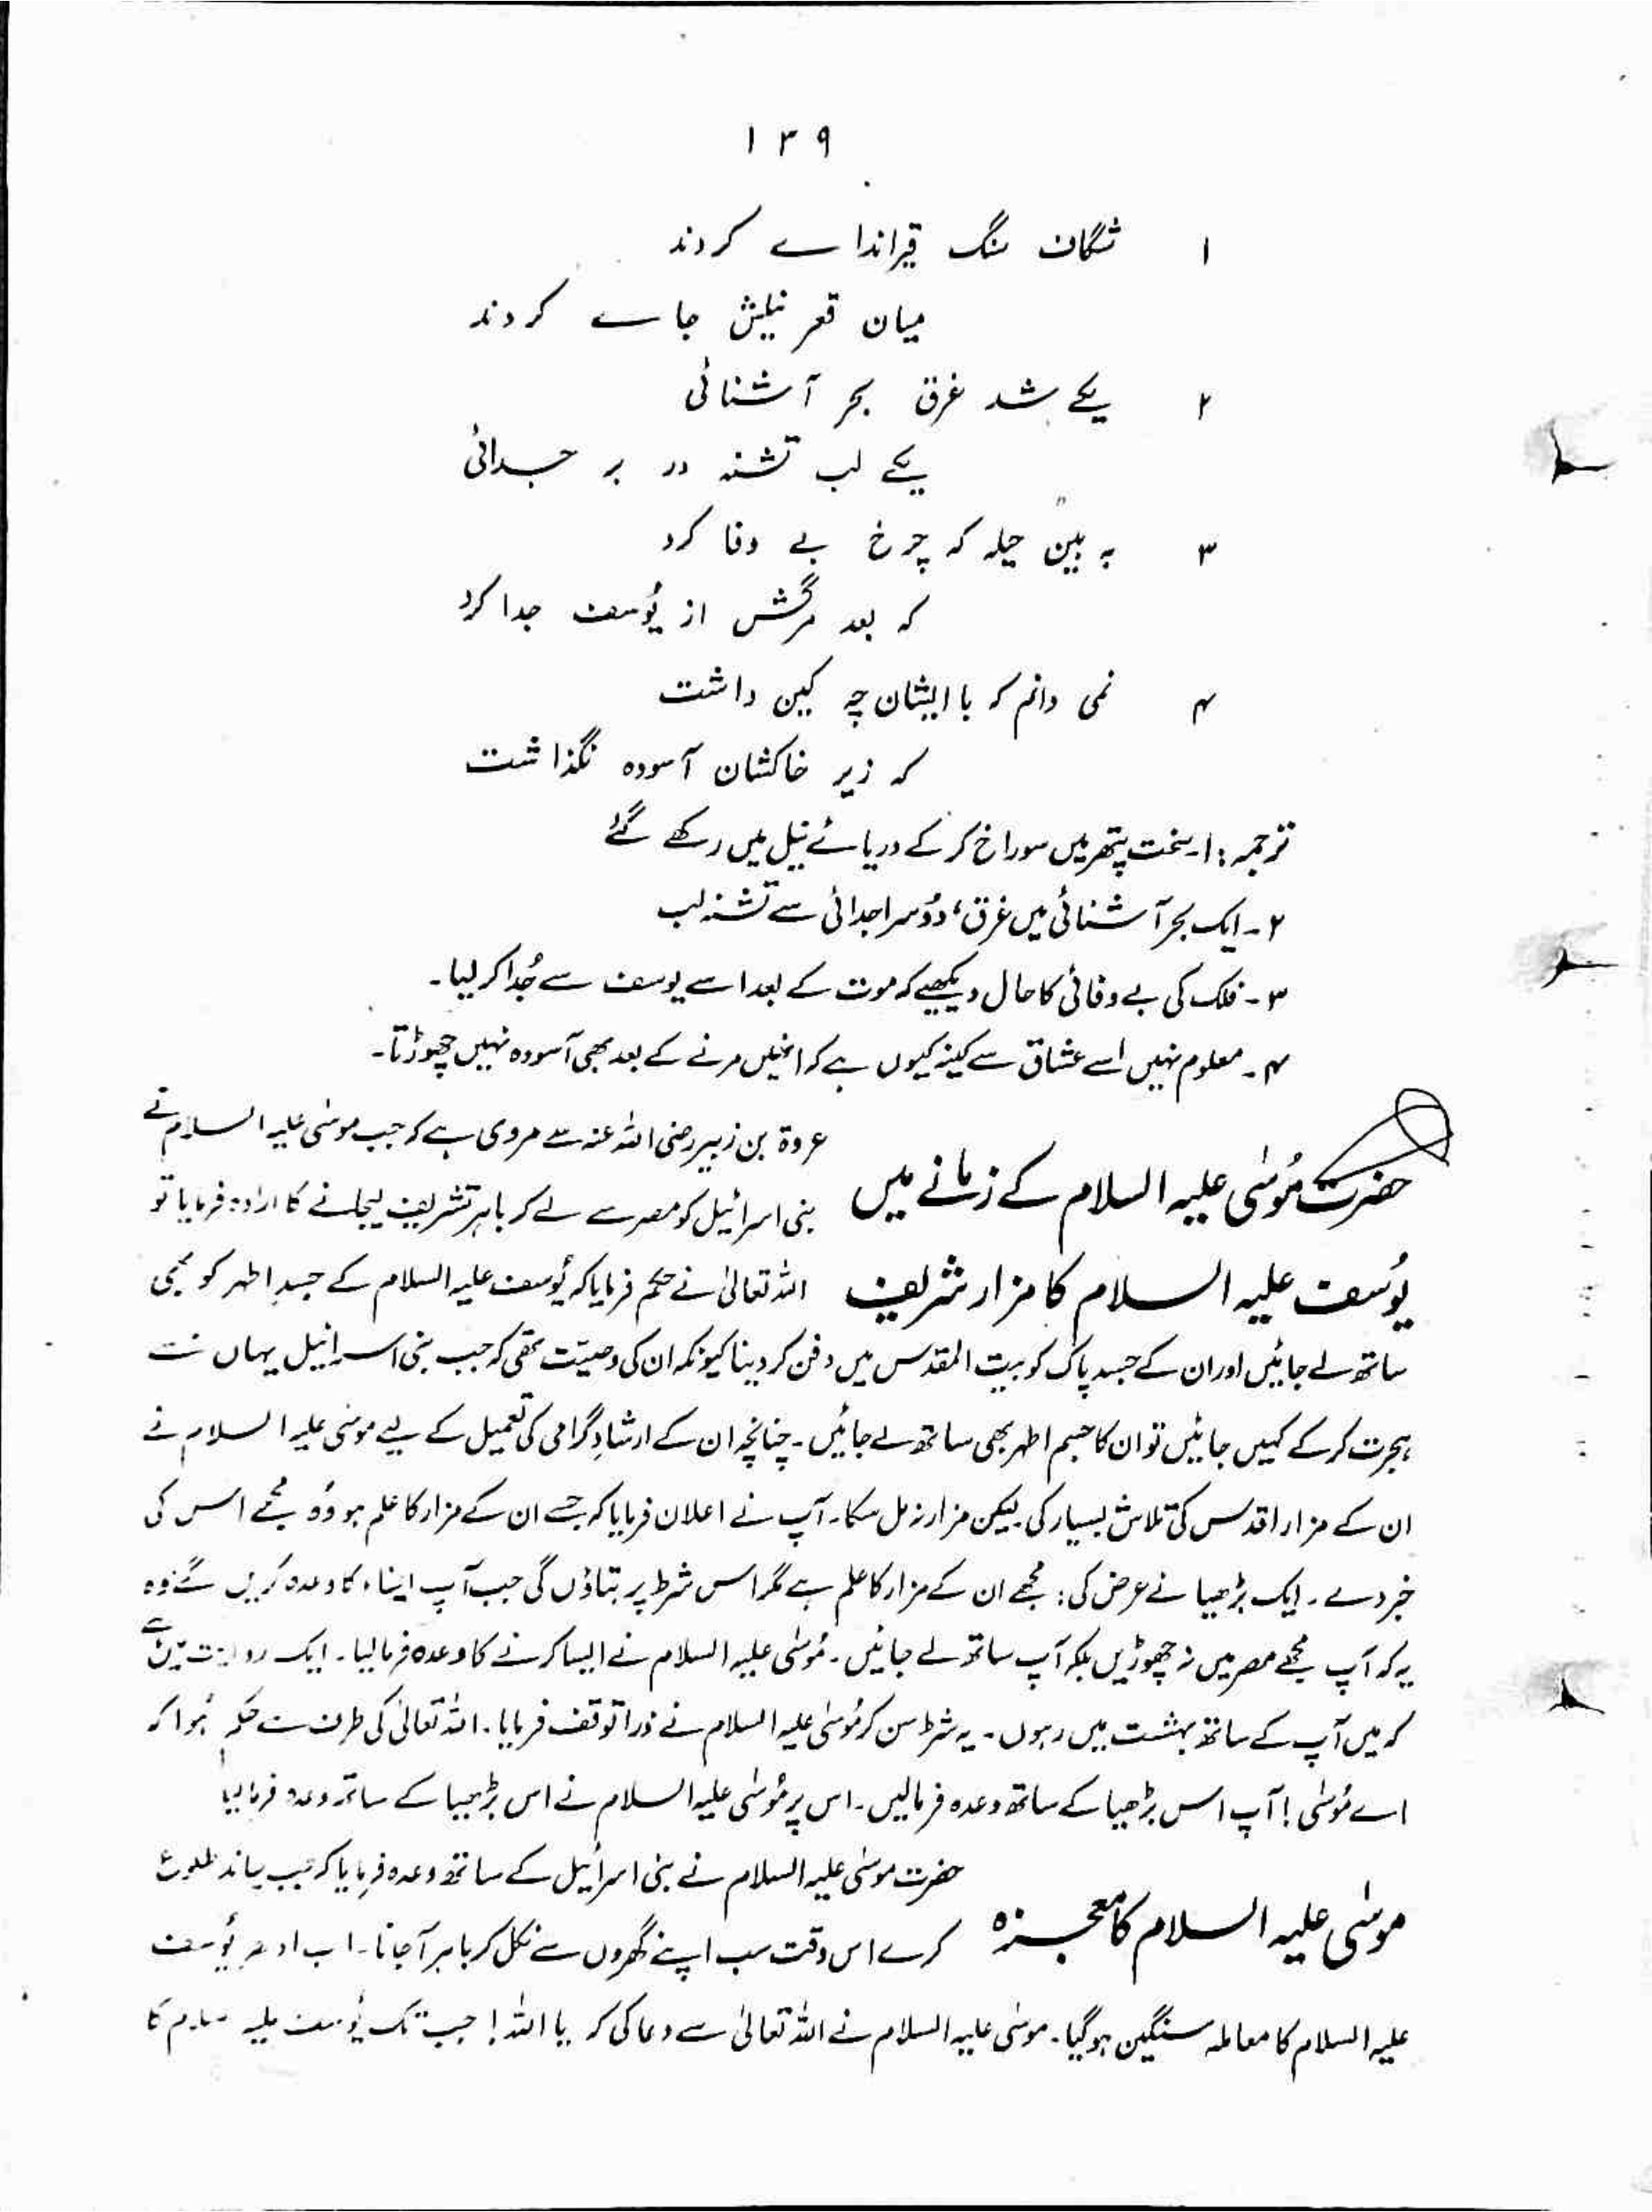 ۱۳۹
۱ شگاف سنگ قیر اندا ے کردند
میان قعر نیلش جا ے کردند
۲ یکے شد غرق بحر آشنائی
یکے لب تشنہ در بر جدائی
۳ بہ بین حیلہ کہ چرخ بے وفا کرد
کہ بعد مرگش از یُوسف جدا کرد
۴ نمی دانم کہ با ایشان چہ کین داشت
کہ زیر خاکشان آسودہ نگذاشت
ترجمہ : ۱۔ سخت پتھر میں سوراخ کر کے دریائے نیل میں رکھے گئے
۲۔ ایک بحر آشنائی میں غرق، دوُسرا جدائی سے تشنہ لب
۳۔ فلک کی بے وفائی کا حال دیکھیے کہ موت کے بعد اسے یوسف سے جُدا کر لیا۔
۴۔ معلوم نہیں اسے عشاق سے کینہ کیوں ہے کہ انہیں مرنے کے بعد بھی آسودہ نہیں چھوڑتا۔
عروۃ بن زبیر رضی اللہ عنہ سے مروی ہے کہ جب موسٰی علیہ السلام نے
حضرت مُوسٰی علیہ السلام کے زمانے میں
بنی اسرائیل کو مصر سے لے کر باہر تشریف لیجانے کا ارادہ فرمایا تو
یُوسف علیہ السلام کا مزار شریف
اللہ تعالٰی نے حکم فرمایا کہ یُوسف علیہ السلام کے جسدِ اطہر کو بھی
ساتھ لے جائیں اور ان کے جسد پاک کو بیت المقدس میں دفن کر دینا کیونکہ ان کی وصیّت تھی کہ جب بنی اسرائیل یہاں سے
ہجرت کر کے کہیں جائیں تو ان کا جسم اطہر بھی ساتھ لے جائیں۔ چنانچہ ان کے ارشادِ گرامی کی تعمیل کے لیے موسٰی علیہ السلام نے
ان کے مزار اقدس کی تلاش بسیار کی لیکن مزار نہ مل سکا۔ آپ نے اعلان فرمایا کہ جسے ان کے مزار کا علم ہو وُہ مجھے اس کی
خبر دے۔ ایک بڑھیا نے عرض کی : مجھے ان کے مزار کا علم ہے مگر اس شرط پر بتاؤں گی جب آپ ایفاء کا وعدہ کریں گے وہ
یہ کہ آپ مجھے مصر میں نہ چھوڑیں بلکہ آپ ساتھ لے جائیں۔ مُوسٰی علیہ السلام نے ایسا کرنے کا وعدہ فرما لیا۔ ایک روایت میں ہے
کہ میں آپ کے ساتھ بہشت میں رہوں۔ یہ شرط سن کر مُوسٰی علیہ السلام نے ذرا توقف فرمایا۔ اللہ تعالٰی کی طرف سے حکم ہُوا کہ
اے مُوسٰی ! آپ اس بڑھیا کے ساتھ وعدہ فرمالیں۔ اس پر مُوسٰی علیہ السلام نے اس بڑھیا کے ساتھ وعدہ فرما لیا
حضرت موسٰی علیہ السلام نے بنی اسرائیل کے ساتھ وعدہ فرمایا کہ جب چاند طلوع
موسٰی علیہ السلام کا معجزہ
کرے اس وقت سب اپنے گھروں سے نکل کر باہر آجانا۔ اب ادھر یُوسف
علیہ السلام کا معاملہ سنگین ہو گیا۔ موسٰی علیہ السلام نے اللہ تعالٰی سے دعا کی کہ یا اللہ ! جب تک یُوسف علیہ سلام کا